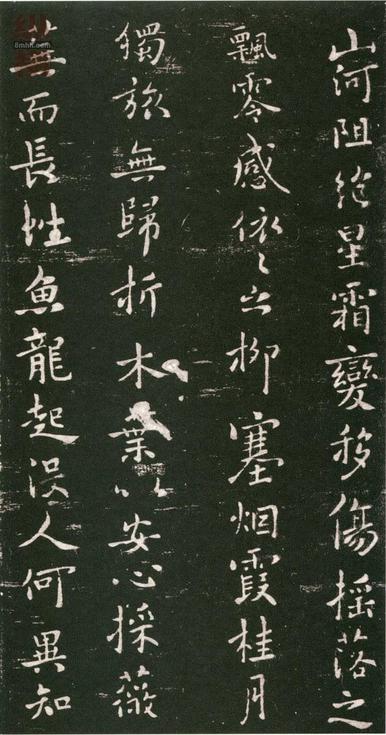 山河阻絕星霜變移傷搖落之
飄零感依々之柳塞烟霞桂月
獨旅無歸折木葉以安心採薇
蕪而長性魚龍起没人何異知